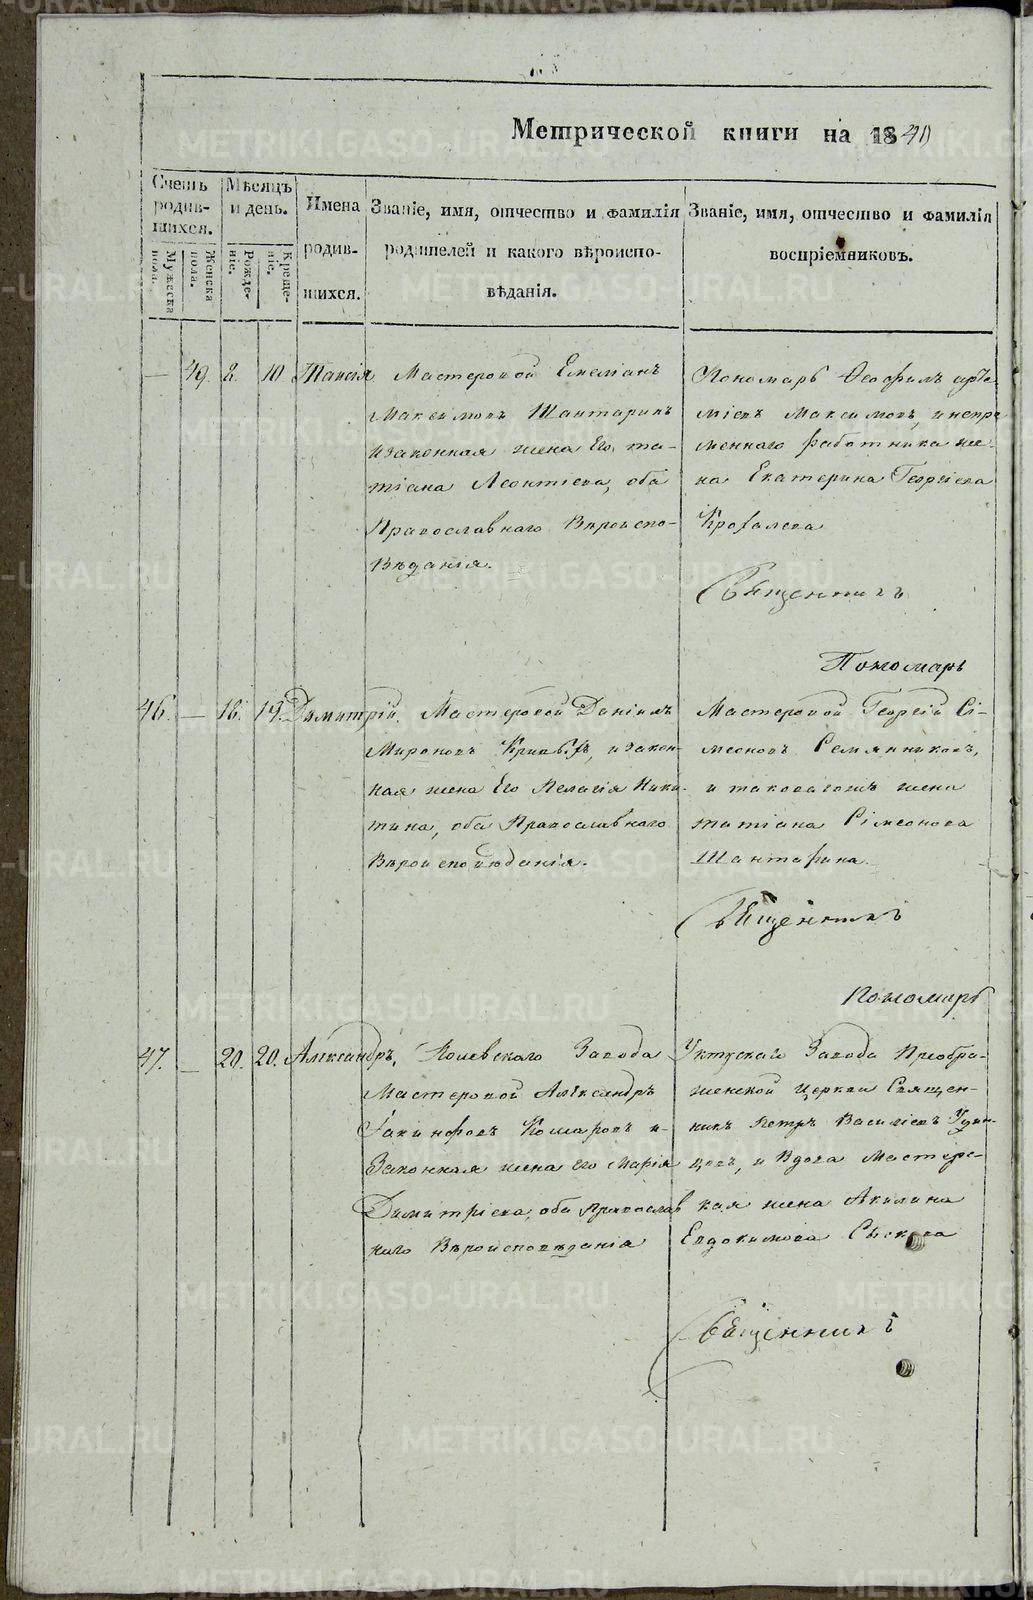 Метрической книги на 1840
Счетъ родив-шихся.
Мужеска пола.
Женска пола.
Мѣсяцъ и день.
Рожде-ніе.
Креще-ніе.
Имена родив-шихся.
Званіе, имя, отчество и фамилія
родителей и какого вѣроиспо-
вѣданія.
Званіе, имя, отчество и фамилія
воспріемниковъ.
— 49. 8. 10. Таисія
Мастеровой Емеліанъ
Максимовъ Шантаринъ
и законная жена Его, та-
тіана Леонтіева, оба
Православнаго Вѣроиспо-
вѣданія.
Пономарь Ѳеофилъ
Максимовъ, и непре
меннаго работника же-
на Екатерина Георгіева
Священникъ
Пономарь
46. — 18. 19. Димитрій,
Мастеровой Даніилъ
Мироновъ и закон-
ная жена Его Пелагія Ники-
тина, оба Православнаго
Вѣроисповѣданія.
Мастеровой Георгій Сі-
меоновъ Семянниковъ,
и таковагожъ жена
татіана Сімеонова
Шантарина.
Священникъ
Пономарь
47. — 20. 20. Александръ,
Полевскаго Завода
Мастеровой Александръ
и
Законная жена его Марія
Димитріева, оба Православ
наго Вѣроисповѣданія
Уктускаго Завода Преобра-
женской Церкви Священ-
никъ Петръ Василіевъ Удин-
цовъ, и Вдова Мастеро-
кая жена Акилина
Евдокимова
Священникъ
METRIKI.GASO-URAL.RU